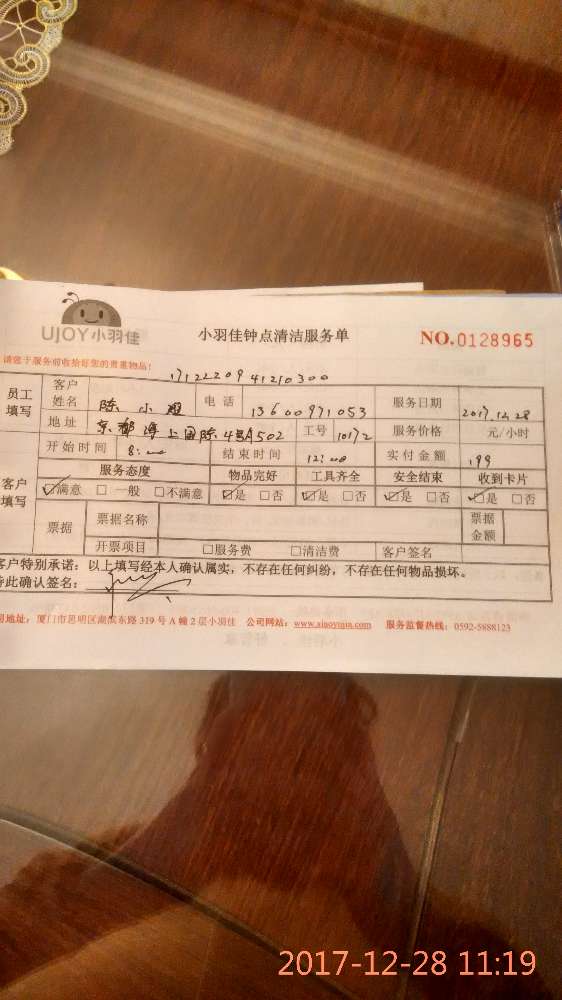 UJOY小羽佳
小羽佳钟点清洁服务单
NO.0128965
请您于服务前收拾好您的贵重物品!
1712220941210300
员工填写 客户姓名 陈小 电话 13600971053 服务日期 2017.12.28
地址 京都海上国际4#A502 工号 10172 服务价格 元/小时
开始时间 8:00 结束时间 12:00 实付金额 199
客户填写 服务态度 物品完好 工具齐全 安全结束 收到卡片
☑满意 □一般 □不满意 ☑是 □否 ☑是 □否 ☑是 □否 ☑是 □否
票据 票据名称 票据金额
开票项目 □服务费 □清洁费 客户签名
客户特别承诺:以上填写经本人确认属实,不存在任何纠纷,不存在任何物品损坏。
特此确认签名:
司地址:厦门市思明区湖滨东路319号A幢2层小羽佳 公司网站: 服务监督热线:0592-5888123
2017-12-28 11:19